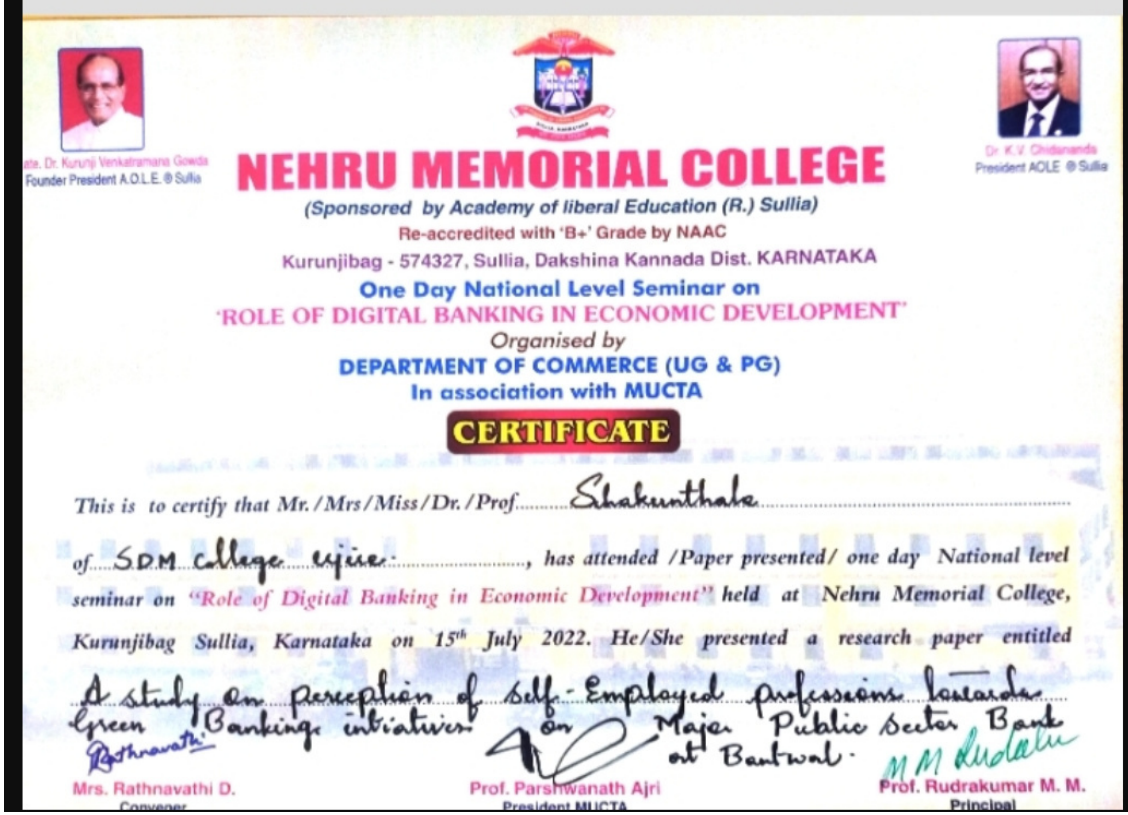 ate. Dr. Kurunji Venkatramana Gowda
Founder President A.O.L.E. ® Sullia
Dr. K.V. Chidananda
President AOLE ® Sullia
NEHRU MEMORIAL COLLEGE
(Sponsored by Academy of liberal Education (R.) Sullia)
Re-accredited with 'B+' Grade by NAAC
Kurunjibag - 574327, Sullia, Dakshina Kannada Dist. KARNATAKA
One Day National Level Seminar on
'ROLE OF DIGITAL BANKING IN ECONOMIC DEVELOPMENT'
Organised by
DEPARTMENT OF COMMERCE (UG & PG)
In association with MUCTA
CERTIFICATE
This is to certify that Mr./Mrs/Miss/Dr./Prof. Shakunthala
of SDM College Ujire, has attended /Paper presented/ one day National level
seminar on "Role of Digital Banking in Economic Development" held at Nehru Memorial College,
Kurunjibag Sullia, Karnataka on 15th July 2022. He/She presented a research paper entitled
A study on perception of Self-Employed professions towards
Green Banking intiatives on Major Public Sector Bank
at Bantwal.
Rathnavathi
M M Rudra
Mrs. Rathnavathi D.
Convener
Prof. Parshwanath Ajri
President MUCTA
Prof. Rudrakumar M. M.
Principal